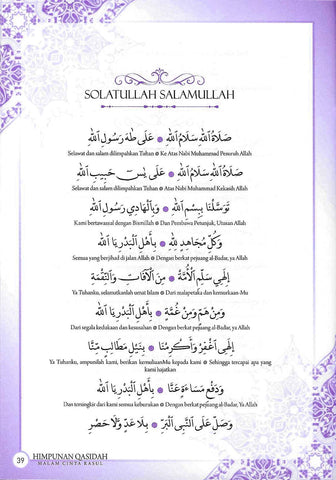 SOLATULLAH SALAMULLAH
صَلَاةُ اللهِ سَلَامُ اللهِ ❁ عَلَى طٰهَ رَسُوْلِ اللهِ
Selawat dan salam dilimpahkan Tuhan ❁ Ke Atas Nabi Muhammad Pesuruh Allah
صَلَاةُ اللهِ سَلَامُ اللهِ ❁ عَلَى يٰسٓ حَبِيْبِ اللهِ
Selawat dan salam dilimpahkan Tuhan ❁ Atas Nabi Muhammad Kekasih Allah
تَوَسَّلْنَا بِبِسْمِ اللهِ ❁ وَبِالْهَادِي رَسُوْلِ اللهِ
Kami bertawassal dengan Bismillah ❁ Dan Pembawa Penunjuk, Utusan Allah
وَكُلِّ مُجَاهِدٍ لِلّٰهِ ❁ بِأَهْلِ الْبَدْرِ يَا اللهُ
Semua yang berjihad di jalan Allah ❁ Dengan berkat pejuang al-Badar, ya Allah
اِلٰهِي سَلِّمِ الْأُمَّةْ ❁ مِنَ الْآفَاتِ وَالنِّقْمَةْ
Ya Tuhanku, selamatkanlah umat Islam ❁ Dari malapetaka dan kemurkaan-Mu
وَمِنْ هَمٍّ وَمِنْ غُمَّةْ ❁ بِأَهْلِ الْبَدْرِ يَا اللهُ
Dari segala kedukaan dan kesusahan ❁ Dengan berkat pejuang al-Badar, ya Allah
اِلٰهِي اغْفِرْ وَأَكْرِمْنَا ❁ بِنَيْلِ مَطَالِبٍ مِنَّا
Ya Tuhanku, ampunilah kami, berikan kemuliaanMu kepada kami ❁ Sehingga tercapai apa yang
kami hajatkan
وَدَفْعِ مَسَاءَةٍ عَنَّا ❁ بِأَهْلِ الْبَدْرِ يَا اللهُ
Dan tersingkir dari kami semua keburukan ❁ Dengan berkat pejuang al-Badar, Ya Allah
وَصَلِّ عَلَى النَّبِي الْبَرِّ ❁ بِلَا عَدٍّ وَلَا حَصْرِ
39
HIMPUNAN QASIDAH
MALAM CINTA RASUL